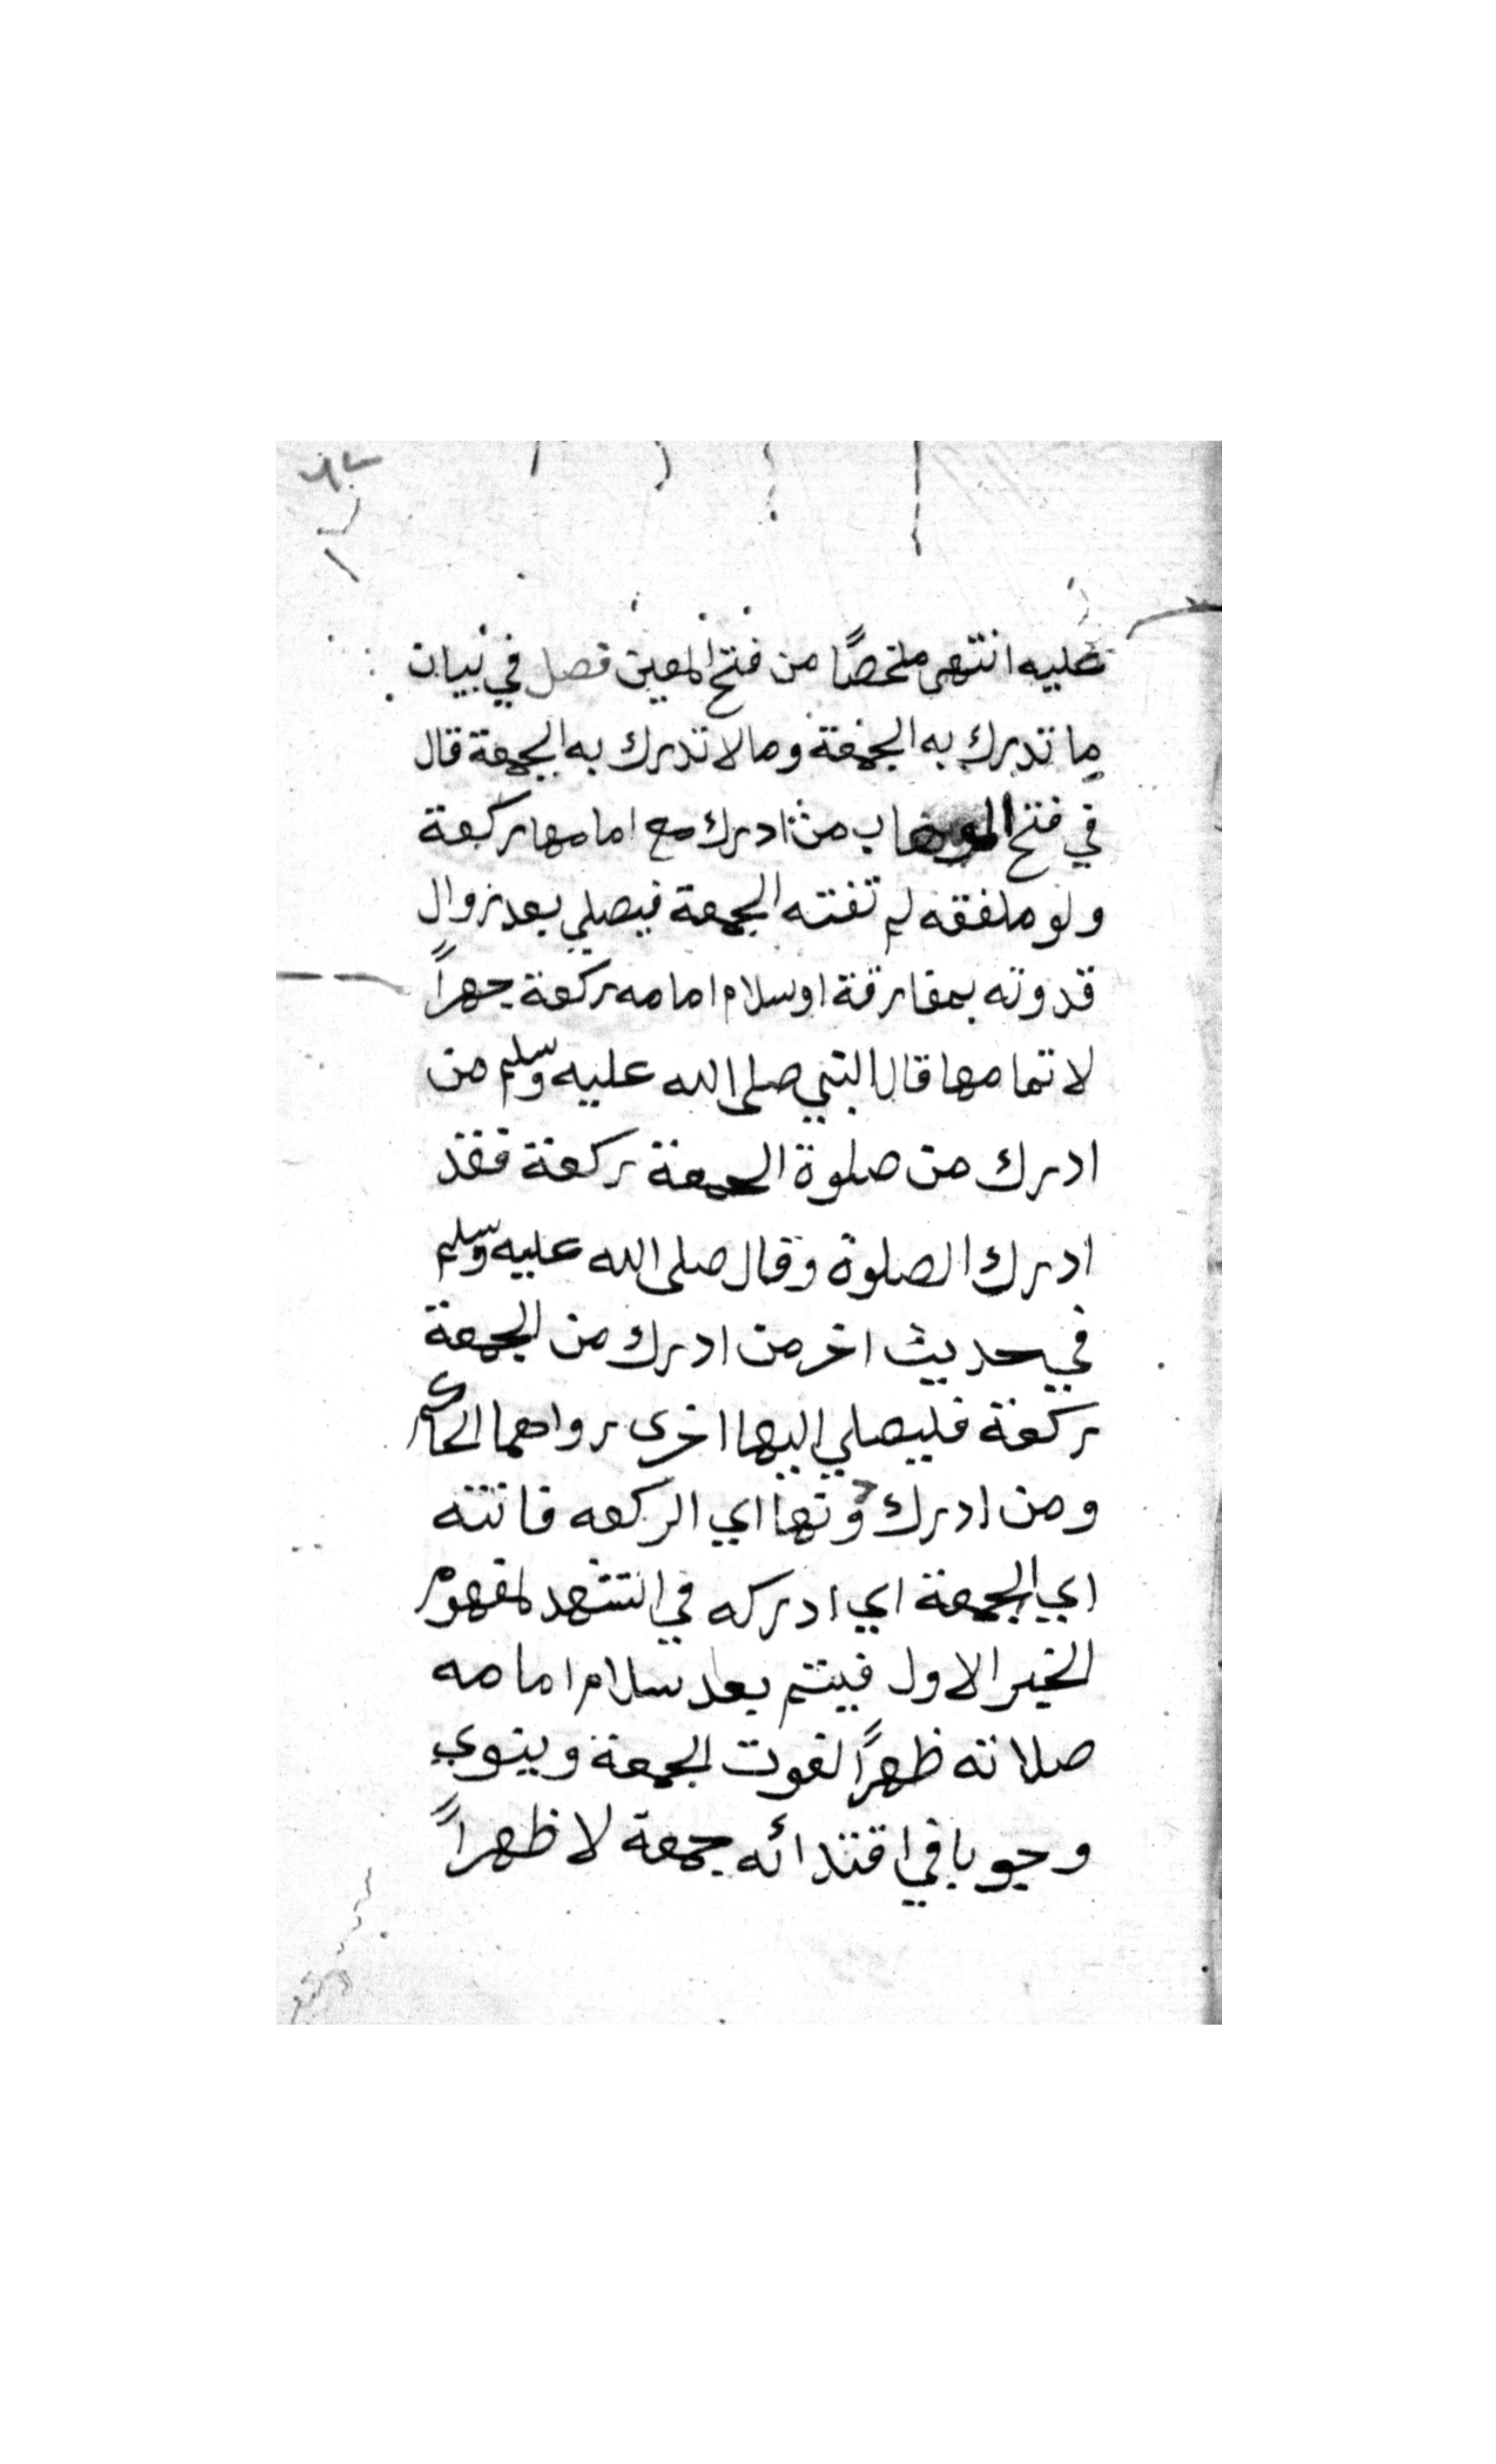 عليه انتهى ملخصًا من فتح المعين فصل في بيان
ما تدرك به الجمعة وما لا تدرك به الجمعة قال
في فتح الوهاب من ادرك مع امامها ركعة
ولو ملفقه لم تفته الجمعة فيصلي بعد زوال
قدوته بمفارقة او سلام امامه ركعة جهراً
لاتمامها قال النبي صلى الله عليه وسلم من
ادرك من صلوة الجمعة ركعة فقد
ادرك الصلوة وقال صلى الله عليه وسلم
في حديث اخر من ادرك من الجمعة
ركعة فليصلي اليها اخرى رواهما الحاكم
ومن ادرك دونها اي الركعه فاتته
اي الجمعة اي ادركه في التشهد لمفهوم
الخبر الاول فيتم بعد سلام امامه
صلاته ظهراً لفوت الجمعة وينوي
وجوبا في اقتدائه جمعة لا ظهراً